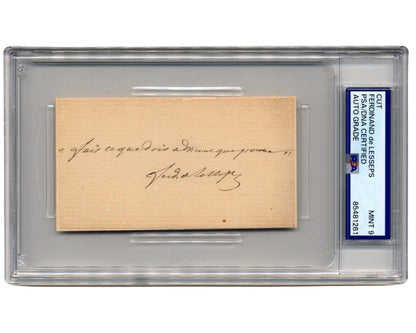 « fais ce que dois advienne que pourra »
Ferd. de Lesseps
CUT
FERDINAND de LESSEPS MINT 9
PSA/DNA CERTIFIED
AUTO GRADE 85481261
PSA